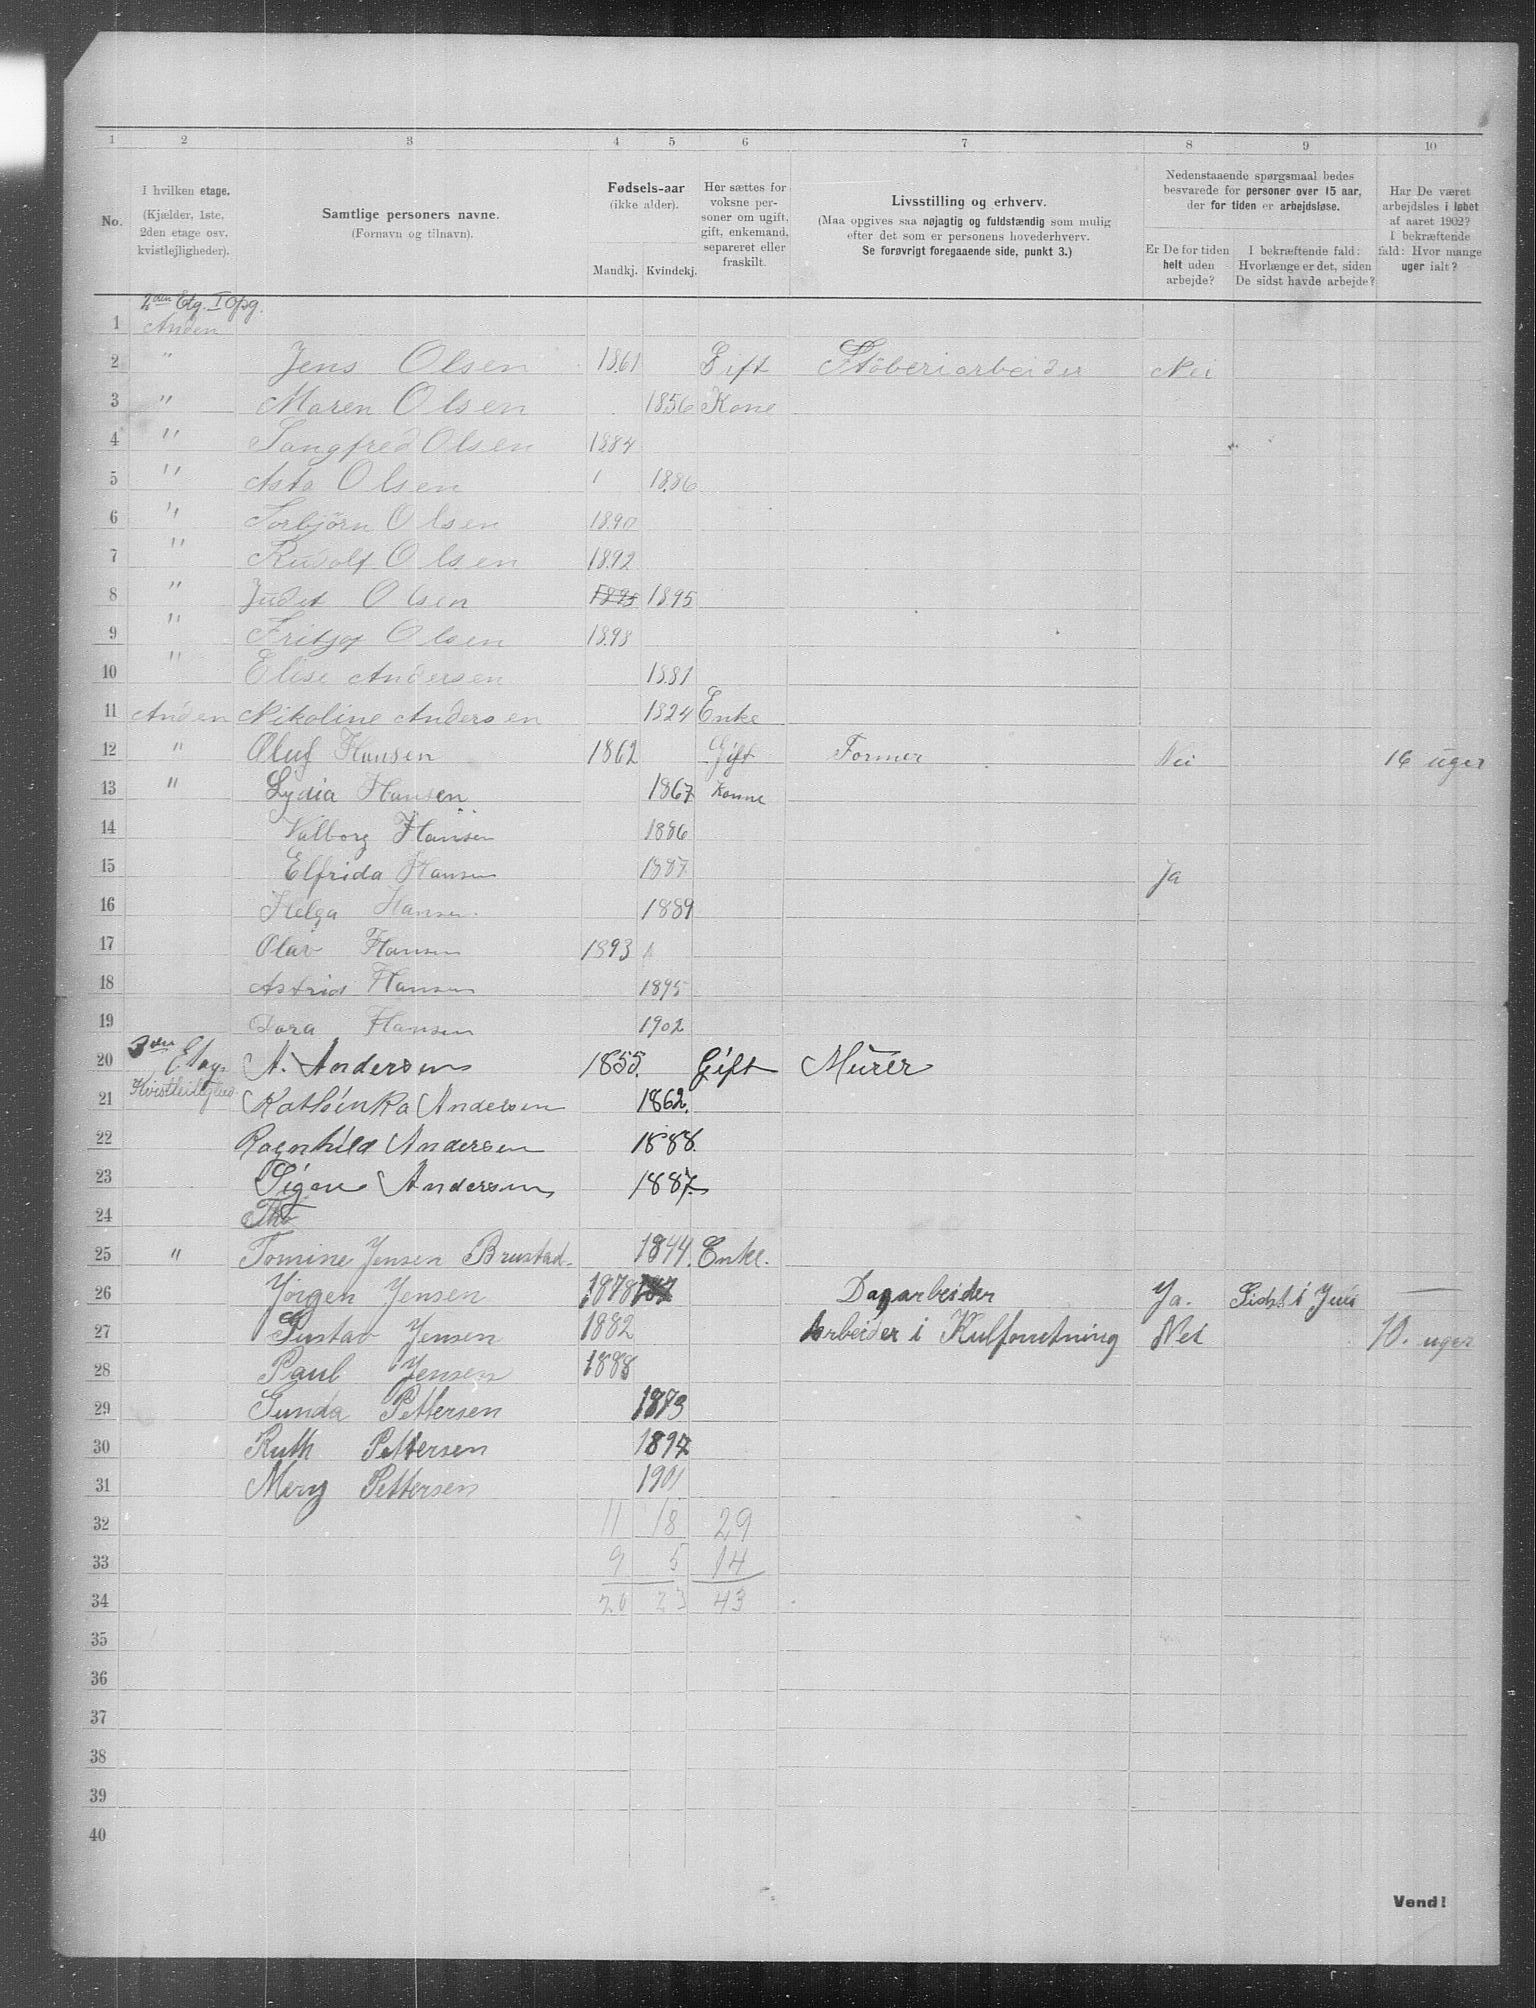 1 2 3 4 5 6 7 8 9 10
No.
I hvilken etage.
(Kjælder, 1ste,
2den etage osv.
kvistlejligheder).
Samtlige personers navne.
(Fornavn og tilnavn).
Fødsels-aar
(ikke alder).
Mandkj. Kvindekj.
Her sættes for
voksne per-
soner om ugift,
gift, enkemand,
separeret eller
fraskilt.
Livsstilling og erhverv.
(Maa opgives saa nøjagtig og fuldstændig som mulig
efter det som er personens hovederhverv.
Se forøvrigt foregaaende side, punkt 3.)
Nedenstaaende spørgsmaal bedes
besvarede for personer over 15 aar,
der for tiden er arbejdsløse.
Er De for tiden
helt uden
arbejde?
I bekræftende fald:
Hvorlænge er det, siden
De sidst havde arbejde?
Har De været
arbejdsløs i løbet
af aaret 1902?
I bekræftende
fald: Hvor mange
uger ialt?
2den Etg. I Opg.
1 Anden
2 " Jens Olsen 1861 Gift Støberiarbeider Nei
3 " Maren Olsen 1856 Kone
4 " Sangfred Olsen 1884
5 " Asta Olsen 1886
6 " Torbjørn Olsen 1890
7 " Rudolf Olsen 1892
8 " Judit Olsen 1895 1895
9 " Fritjof Olsen 1898
10 " Elise Andersen 1881
11 Anden Nikoline Andersen 1824 Enke
12 " Oluf Hansen 1862 Gift Former Nei 16 uger
13 " Lydia Hansen 1867 Konne
14 Valborg Hansen 1886
15 Elfrida Hansen 1887 Ja
16 Helga Hansen 1889
17 Olav Hansen 1893
18 Astrid Hansen 1895
19 Dora Hansen 1902
20 3den Etag A. Andersen 1855. Gift Murer
21 Kathinka Andersen 1862.
22 Ragnhild Andersen 1888.
23 Signe Andersen 1887.
24 Tho
25 " Tomine Jensen Brustad. 1844. Enke.
26 Jørgen Jensen 1878 187 Dagarbeider Ja. Sidst i Juli —
27 Gustav Jensen 1882 Arbeider i Kulforretning Nei 10. uger
28 Paul Jensen 1888
29 Gunda Pettersen 1873
30 Ruth Pettersen 1897
31 Mery Pettersen 1901
32 11 18 29
33 9 5 14
34 20 23 43
35
36
37
38
39
40
Vend!